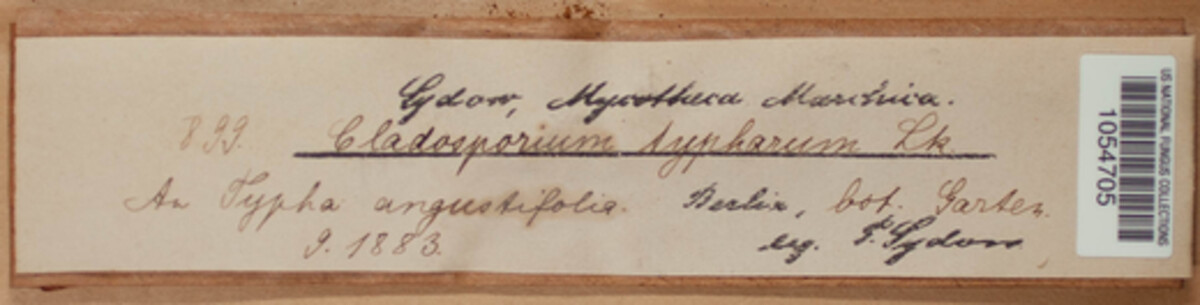 Sydow, Mycotheca Marchica.
899. Cladosporium typharum Lk.
An Typha angustifolia. Berlin, bot. Garten.
9. 1883. leg. P. Sydow
US NATIONAL FUNGUS COLLECTIONS
1054705